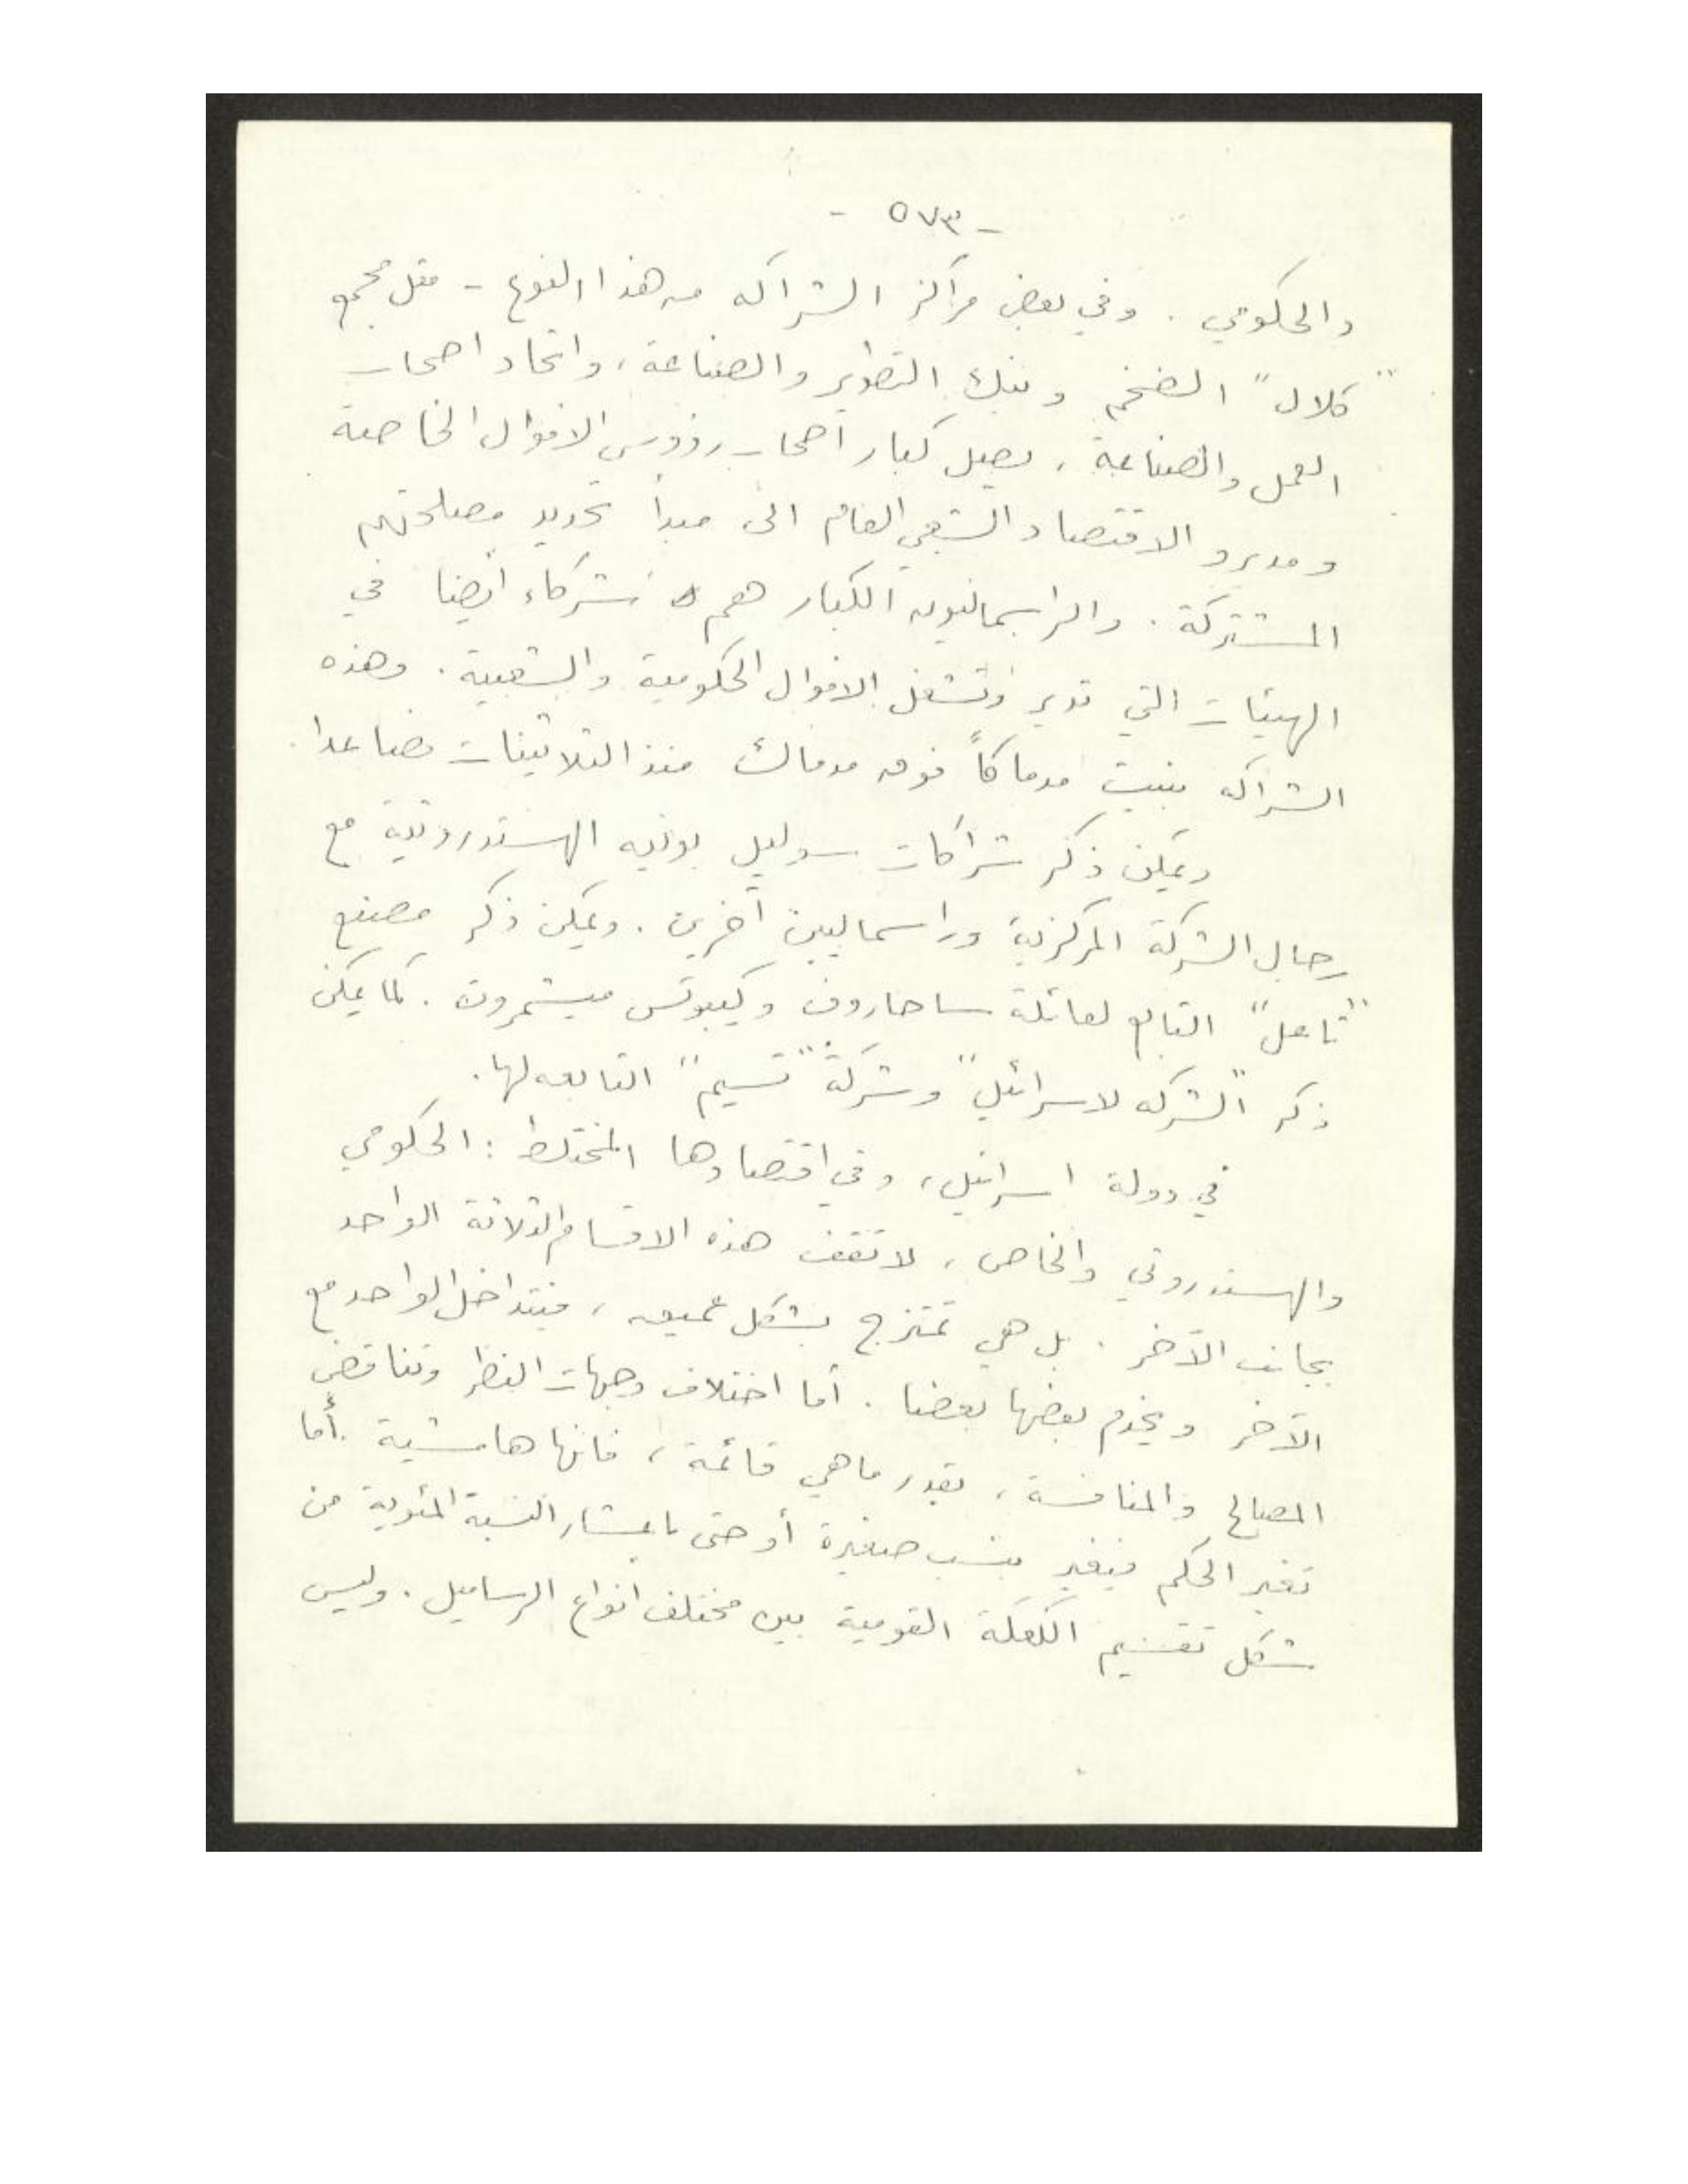 - ٥٧٣ -
والحكومي . وفي بعض مراكز الشراكه من هذا النوع - مثل مجمع
"كلال" الضخم وبنك التطوير والصناعة، واتحاد اصحاب
العمل والصناعة، يصل كبار أصحاب رؤوس الاموال الخاصة
ومديرو الاقتصاد الشعبي العام الى مبدأ تحديد مصلحتهم
المشتركة . والراسماليون الكبار هم شركاء أيضا في
الهيئات التي تدير وتشغل الاموال الحكومية والشعبية . وهذه
الشراكه بنيت مدماكاً فوق مدماك منذ الثلاثينات فصاعدا .
ويمكن ذكر شراكات سوليل بونيه الهستدروتية مع
رجال الشركة المركزية وراسماليين آخرين . ويمكن ذكر مصنع
"تاعل" التابع لعائلة ساحاروف وكيبوتس ميشمروت . كما يمكن
ذكر "الشركه لاسرائيل" وشركة "تسيم" التابعه لها .
في دولة اسرائيل، وفي اقتصادها المختلط : الحكومي
والهستدروتي والخاص، لا تقف هذه الاقسام الثلاثة الواحد
بجانب الآخر . بل هي تمتزج بشكل عميق، فيتداخل الواحد مع
الآخر ويخدم بعضها بعضا . أما اختلاف وجهات النظر وتناقض
المصالح والمنافسة، بقدر ما هي قائمة، فانها هامشية . أما
تغير الحكم فيغير بنسب صغيرة أو حتى باعشار النسبة المئوية من
شكل تقسيم الكعكة القومية بين مختلف انواع الرساميل . وليس